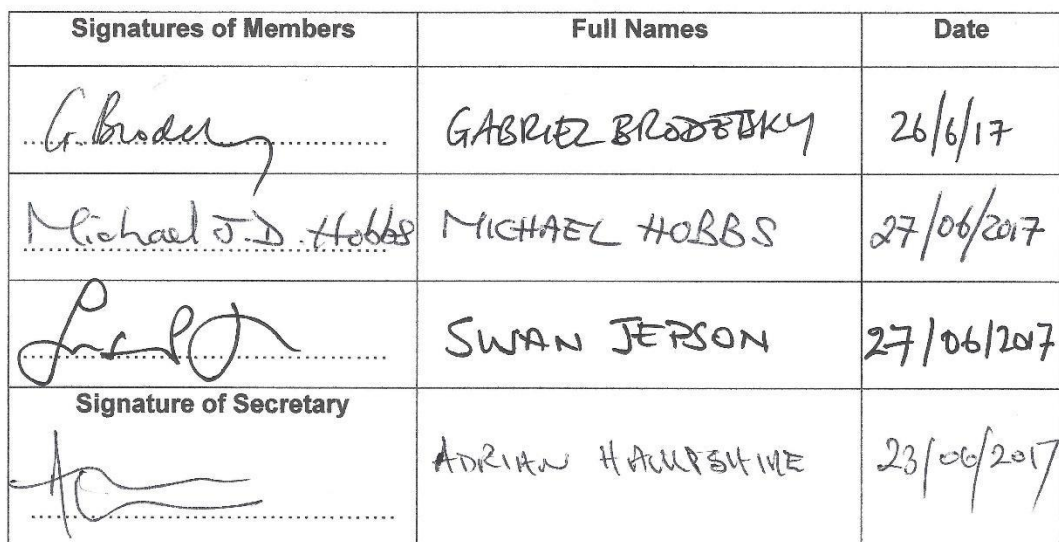 Signatures of Members Full Names Date
G. GABRIEL BRODETSKY 26/6/17
Michael J.D. Hobbs MICHAEL HOBBS 27/06/2017
SWAN JEPSON 27/06/2017
Signature of Secretary
ADRIAN HAMPSHIRE 23/06/2017